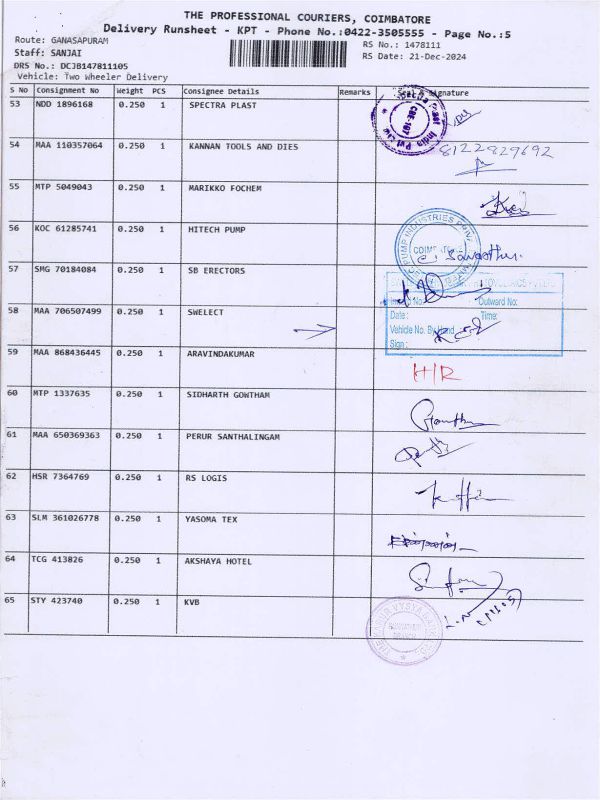 THE PROFESSIONAL COURIERS, COIMBATORE
Delivery Runsheet - KPT - Phone No.:0422-3505555 - Page No.:5
Route: GANASAPURAM
RS No.: 1478111
Staff: SANJAI
RS Date: 21-Dec-2024
DRS No.: DCJB147811105
Vehicle: Two Wheeler Delivery
S No Consignment No Weight PCS Consignee Details Remarks Signature
53 NDD 1896168 0.250 1 SPECTRA PLAST
54 MAA 110357064 0.250 1 KANNAN TOOLS AND DIES 8122829692
55 MTP 5049043 0.250 1 MARIKKO FOCHEM
56 KOC 61285741 0.250 1 HITECH PUMP
57 SMG 70184084 0.250 1 SB ERECTORS
Outward No:
58 MAA 706507499 0.250 1 SWELECT Date: Time:
Vehicle No. By Hand
Sign:
59 MAA 868436445 0.250 1 ARAVINDAKUMAR H/R
60 MTP 1337635 0.250 1 SIDHARTH GOWTHAM
61 MAA 650369363 0.250 1 PERUR SANTHALINGAM
62 HSR 7364769 0.250 1 RS LOGIS
63 SLM 361026778 0.250 1 YASOMA TEX
64 TCG 413826 0.250 1 AKSHAYA HOTEL
65 STY 423740 0.250 1 KVB